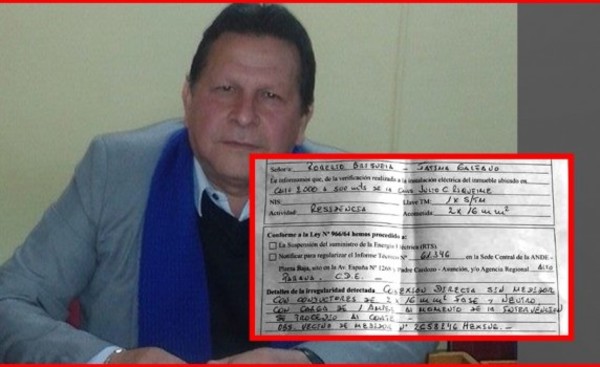 Señor/a ROGELIO BRITNEZA - FATIMA GALEANO
Le informamos que, de la verificación realizada a la instalación eléctrica del inmueble ubicado en
CASI 2000 A 500 mts DE LA CALLE JULIO C. RIQUELME
NIS Llave TM: 1x S/TM
Actividad RESIDENCIA Acometida: 2 x 16 mm²
Conforme a la Ley Nº 966/64 hemos procedido a:
La Suspensión del suministro de la Energía Eléctrica (RTS).
Notificar para regularizar el Informe Técnico Nº 61.346 en la Sede Central de la ANDE -
Planta Baja, sito en la Av. España Nº 1268 y Padre Cardozo - Asunción, y/o Agencia Regional ALTO
PARANA, C.D.E. -
Detalles de la irregularidad detectada CONEXIÓN DIRECTA SIN MEDIDOR
CON CONDUCTORES DE 2 x 16 mm² FASE Y NEUTRO
CON CARGA DE 1 AMPER AL MOMENTO DE LA INTERVENCION
SE PROCEDIO AL CORTE -
OBS. VECINO DE MEDIDOR Nº 2658246 HEXING. -